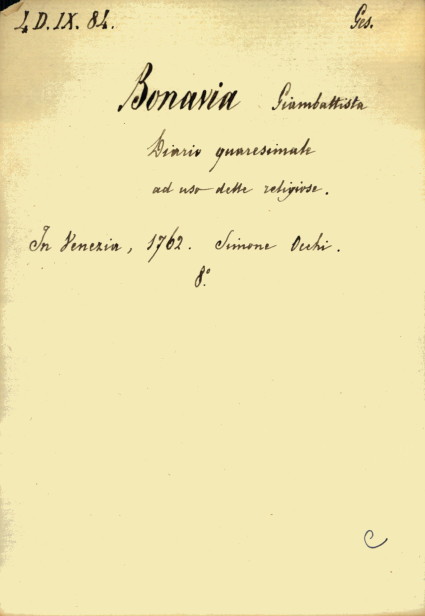 4 D. IX. 84. Ges.
Bonavia Giambattista
Diario quaresimale
ad uso delle religiose.
In Venezia, 1762. Simone Occhi.
8.°
C